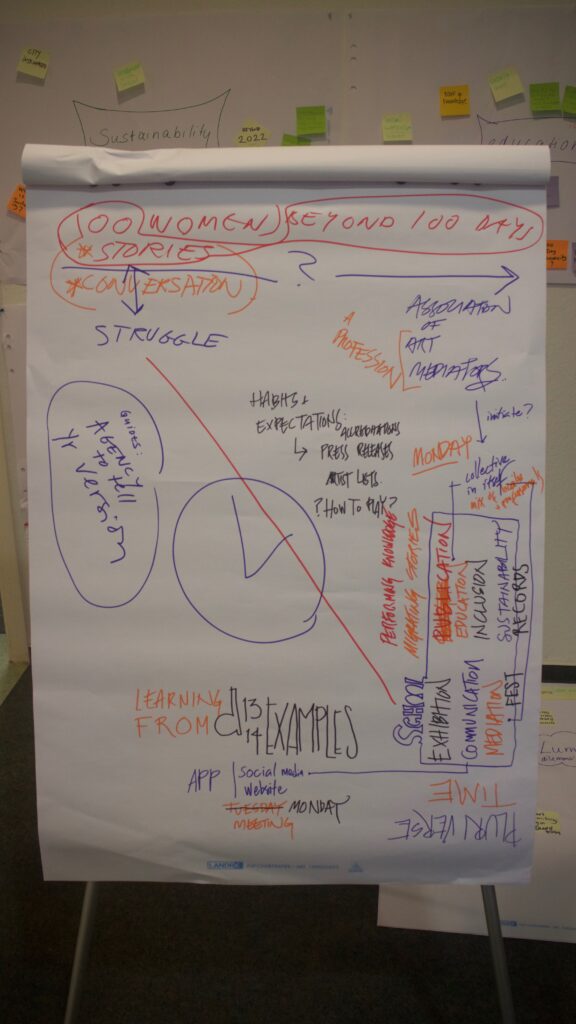 CITY
Sustainability
BEYOND
2022
education
100 WOMEN BEYOND 100 DAYS
*STORIES
*CONVERSATION
?
STRUGGLE
A
PROFESSION
ASSOCIATION
OF
ART
MEDIATORS
initiate?
MONDAY
collective
in itself
mix of
HABITS +
EXPECTATIONS:
PRESS RELEASES
ARTIST LISTS
? HOW TO PLAY?
GUIDES:
AGENCY
PERFORMING KNOWLEDGE
MIGRATING STORIES
EDUCATION
INCLUSION
SUSTAINABILITY
RECORDS
SCHOOL
EXHIBITION
COMMUNICATION
MEDIATION
: FEST
LEARNING
FROM d 13 14 EXAMPLES
APP social media
website
TUESDAY MONDAY
MEETING
TIME
PLURIVERSE
LANDRÉ